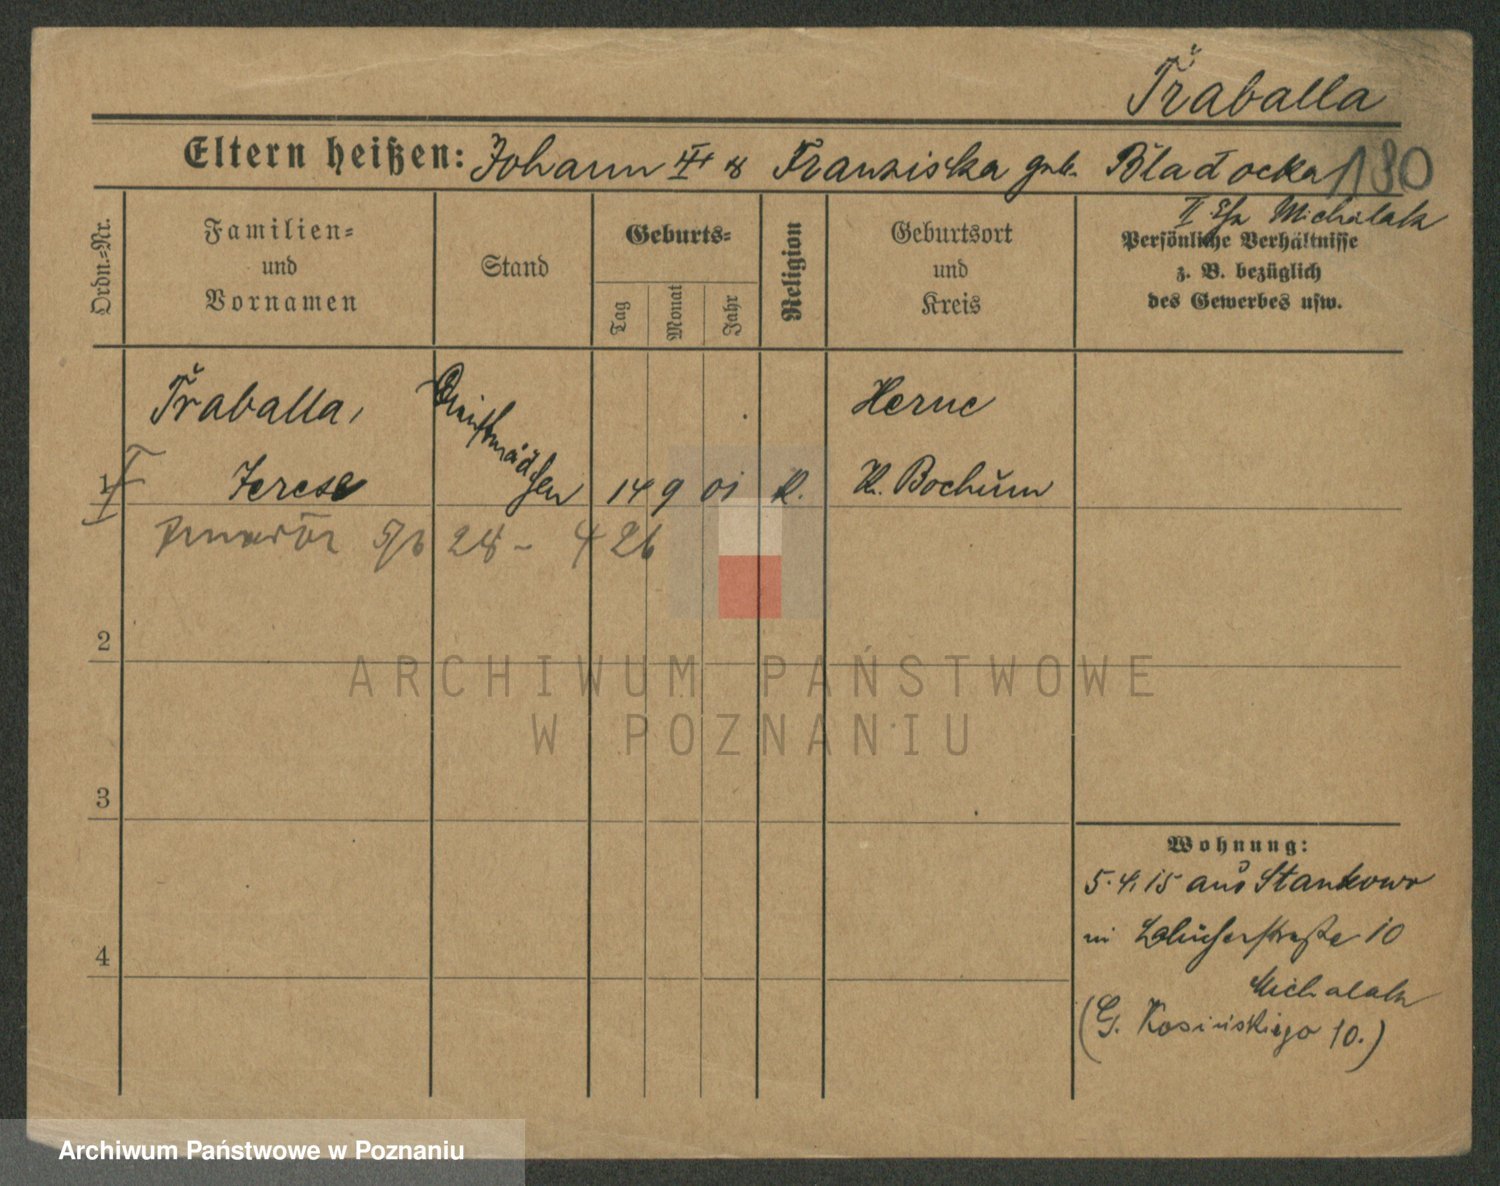 Traballa
Eltern heißen: Johann & Franziska geb. 180
II Michalak
Ordn.-Nr.
Familien-
und
Vornamen
Stand
Geburts-
Tag
Monat
Jahr
Religion
Geburtsort
und
Kreis
Persönliche Verhältnisse
z. B. bezüglich
des Gewerbes usw.
Traballa,
Terese
Dienstmädchen
14 9 01 K.
Herne
K. Bochum
28 - 4 26
1
2
3
4
Wohnung:
5.4.15 aus Stankowo
10
Michalak
(G. Kosińskiego 10.)
ARCHIWUM PAŃSTWOWE
W POZNANIU
Archiwum Państwowe w Poznaniu